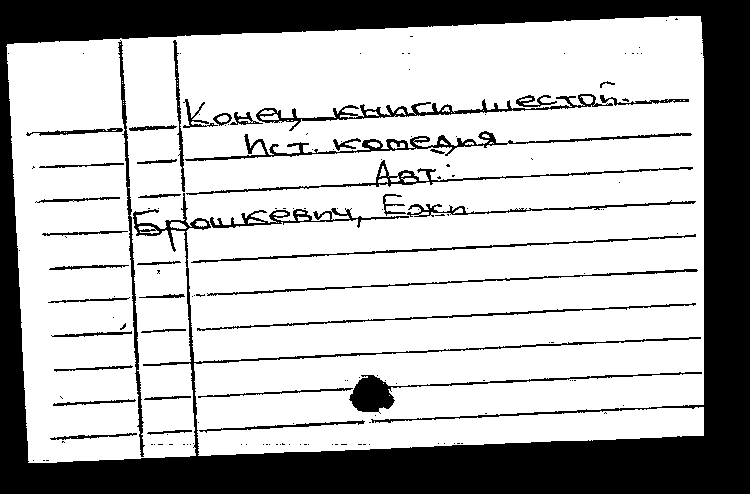 Конец книги шестой.
Ист. комедия.
Авт.:
Брошкевич, Ежи